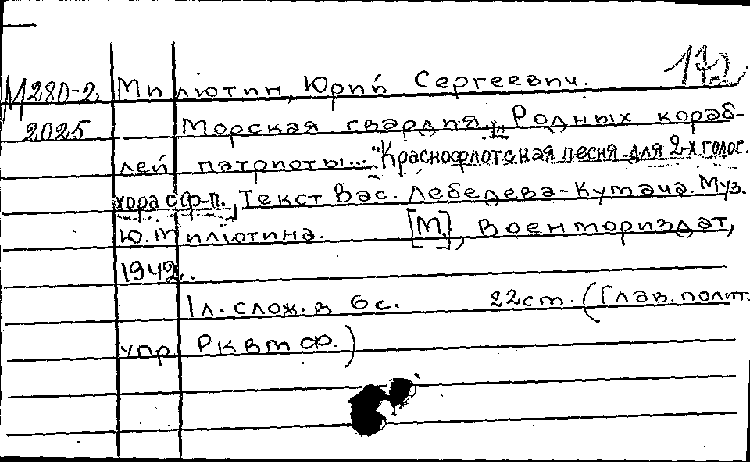 172
М 280-2 Милютин, Юрий Сергеевич.
2025 Морская гвардия. "Родных кораб-
лей патриоты..." Краснофлотская песня для 2-х голос.
хора с ф-п. Текст Вас. Лебедева-Кумача. Муз.
Ю. Милютина. [М], Военмориздат,
1942.
1 л. слож. в 6 с. 22 см. (Глав. полит.
упр. РКВМФ.)